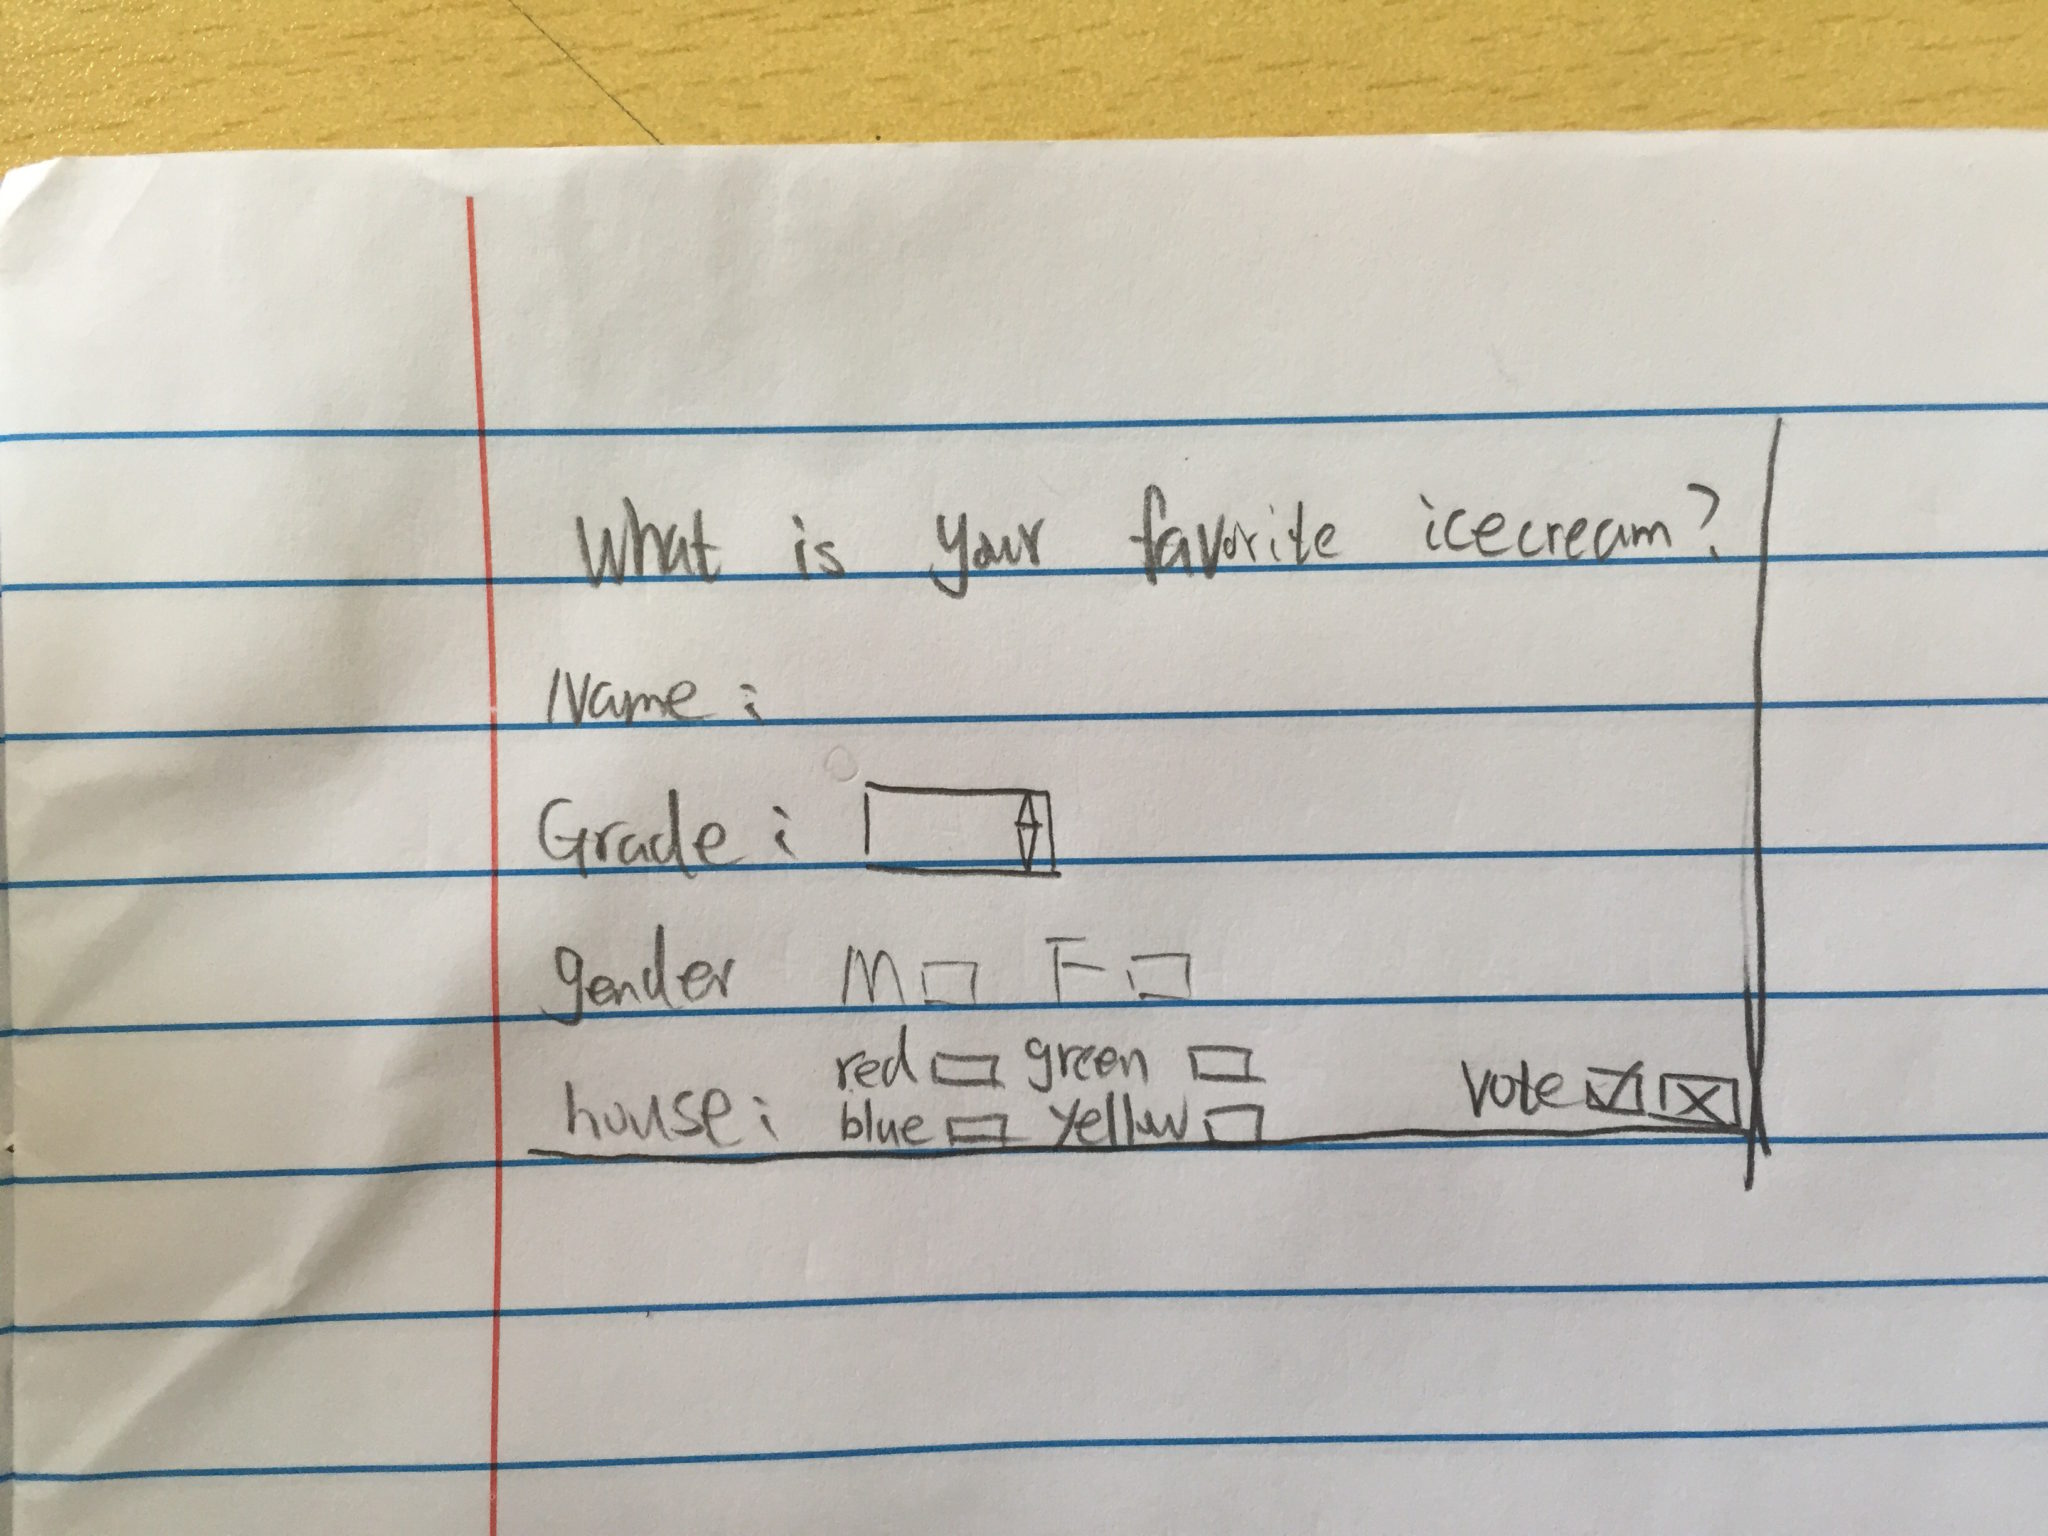 What is your favorite icecream?
Name:
Grade:
gender M F
red green
house: blue yellow
vote